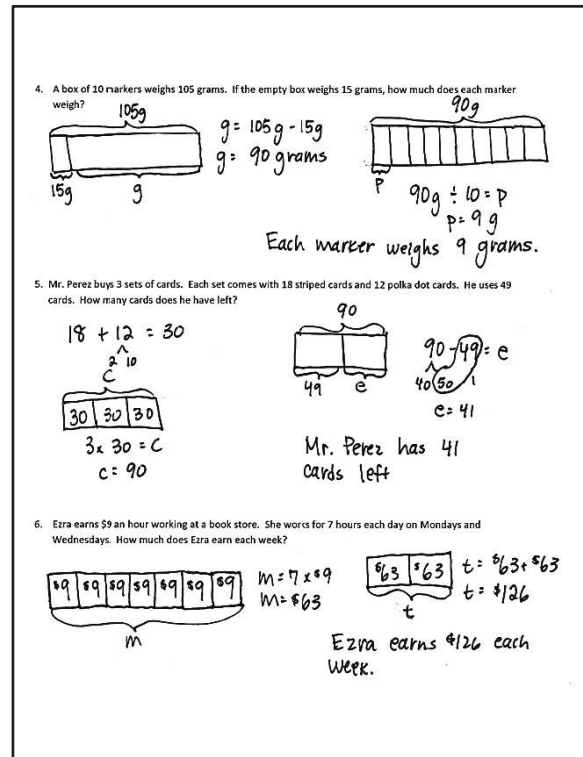 4. A box of 10 markers weighs 105 grams. If the empty box weighs 15 grams, how much does each marker
weigh?
105g
15g
g
g = 105g - 15g
g = 90 grams
90g
p
90g ÷ 10 = p
p = 9g
Each marker weighs 9 grams.
5. Mr. Perez buys 3 sets of cards. Each set comes with 18 striped cards and 12 polka dot cards. He uses 49
cards. How many cards does he have left?
18 + 12 = 30
2 10
C
30 30 30
3 x 30 = C
C = 90
90
49 e
90 - 49 = e
40 50 1
e = 41
Mr. Perez has 41
cards left
6. Ezra earns $9 an hour working at a book store. She works for 7 hours each day on Mondays and
Wednesdays. How much does Ezra earn each week?
$9 $9 $9 $9 $9 $9 $9
m
m = 7 x $9
m = $63
$63 $63
t
t = $63 + $63
t = $126
Ezra earns $126 each
week.